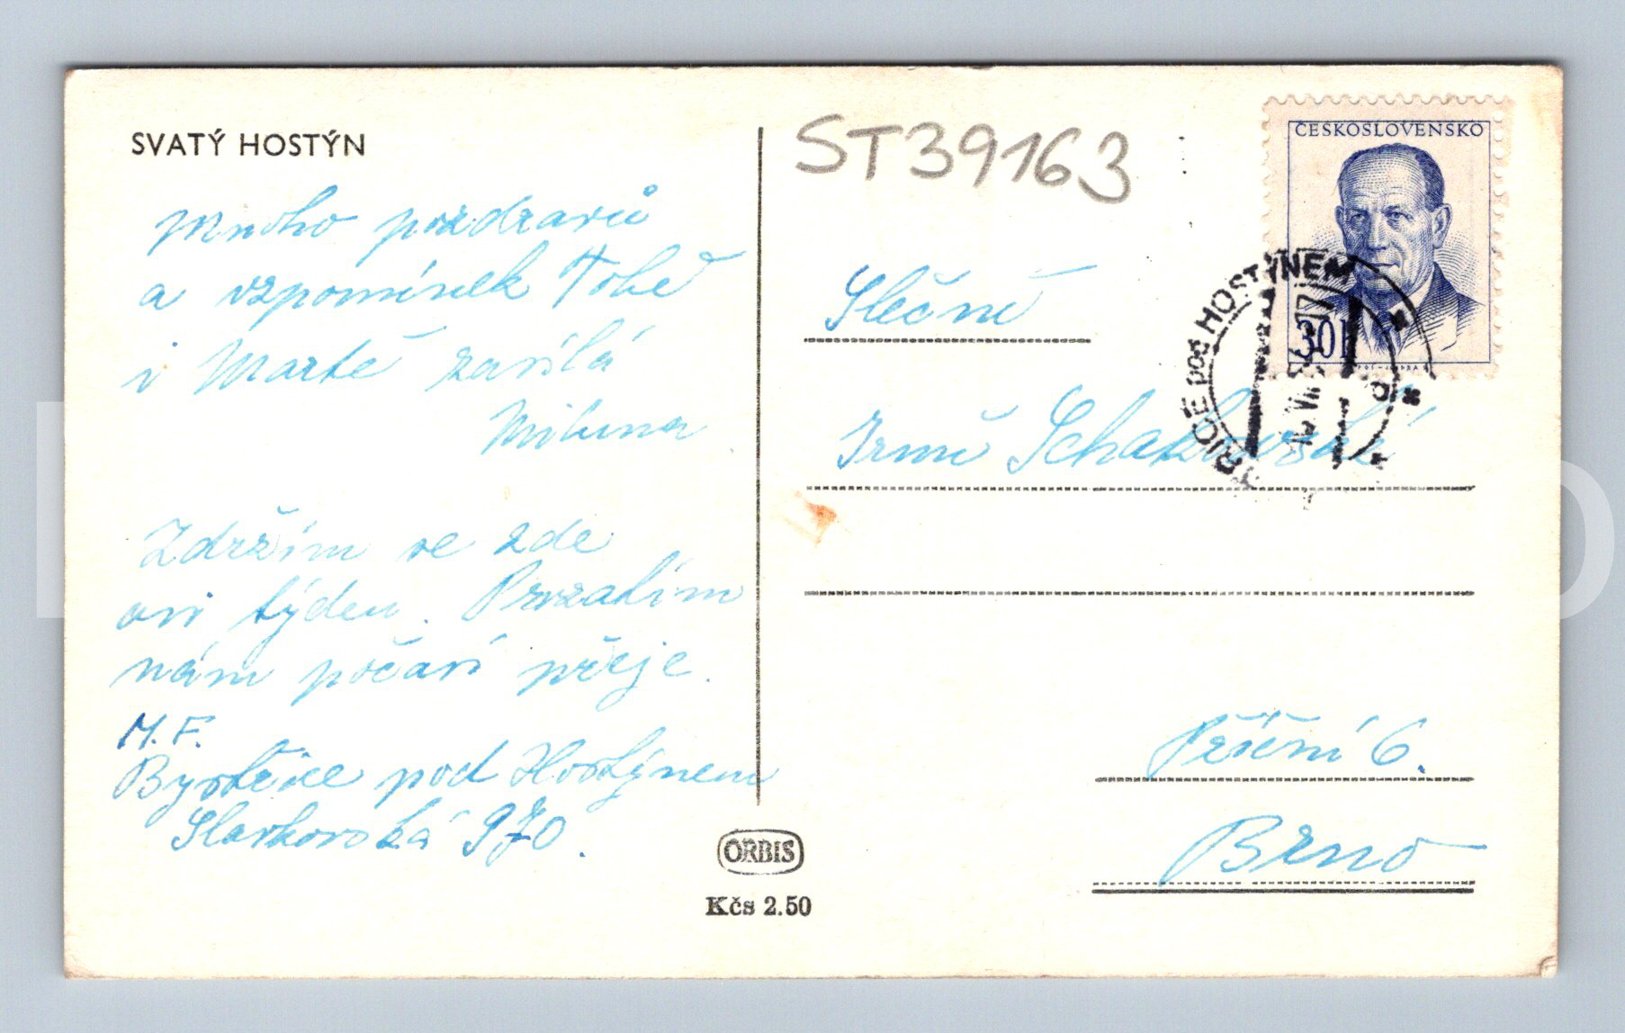 SVATÝ HOSTÝN
ST39163
ČESKOSLOVENSKO
30h
Mnoho pozdravů
a vzpomínek Tobě
i Martě zasílá
Miluna
Zdržím se zde
asi týden. Prozatím
nám počasí přeje.
M. F.
Bystřice pod Hostýnem
Slavkovská 970.
Slečně
Irmě
Peřění 6.
Brno
TŘICE pod HOSTÝNEM
ORBIS
Kčs 2.50